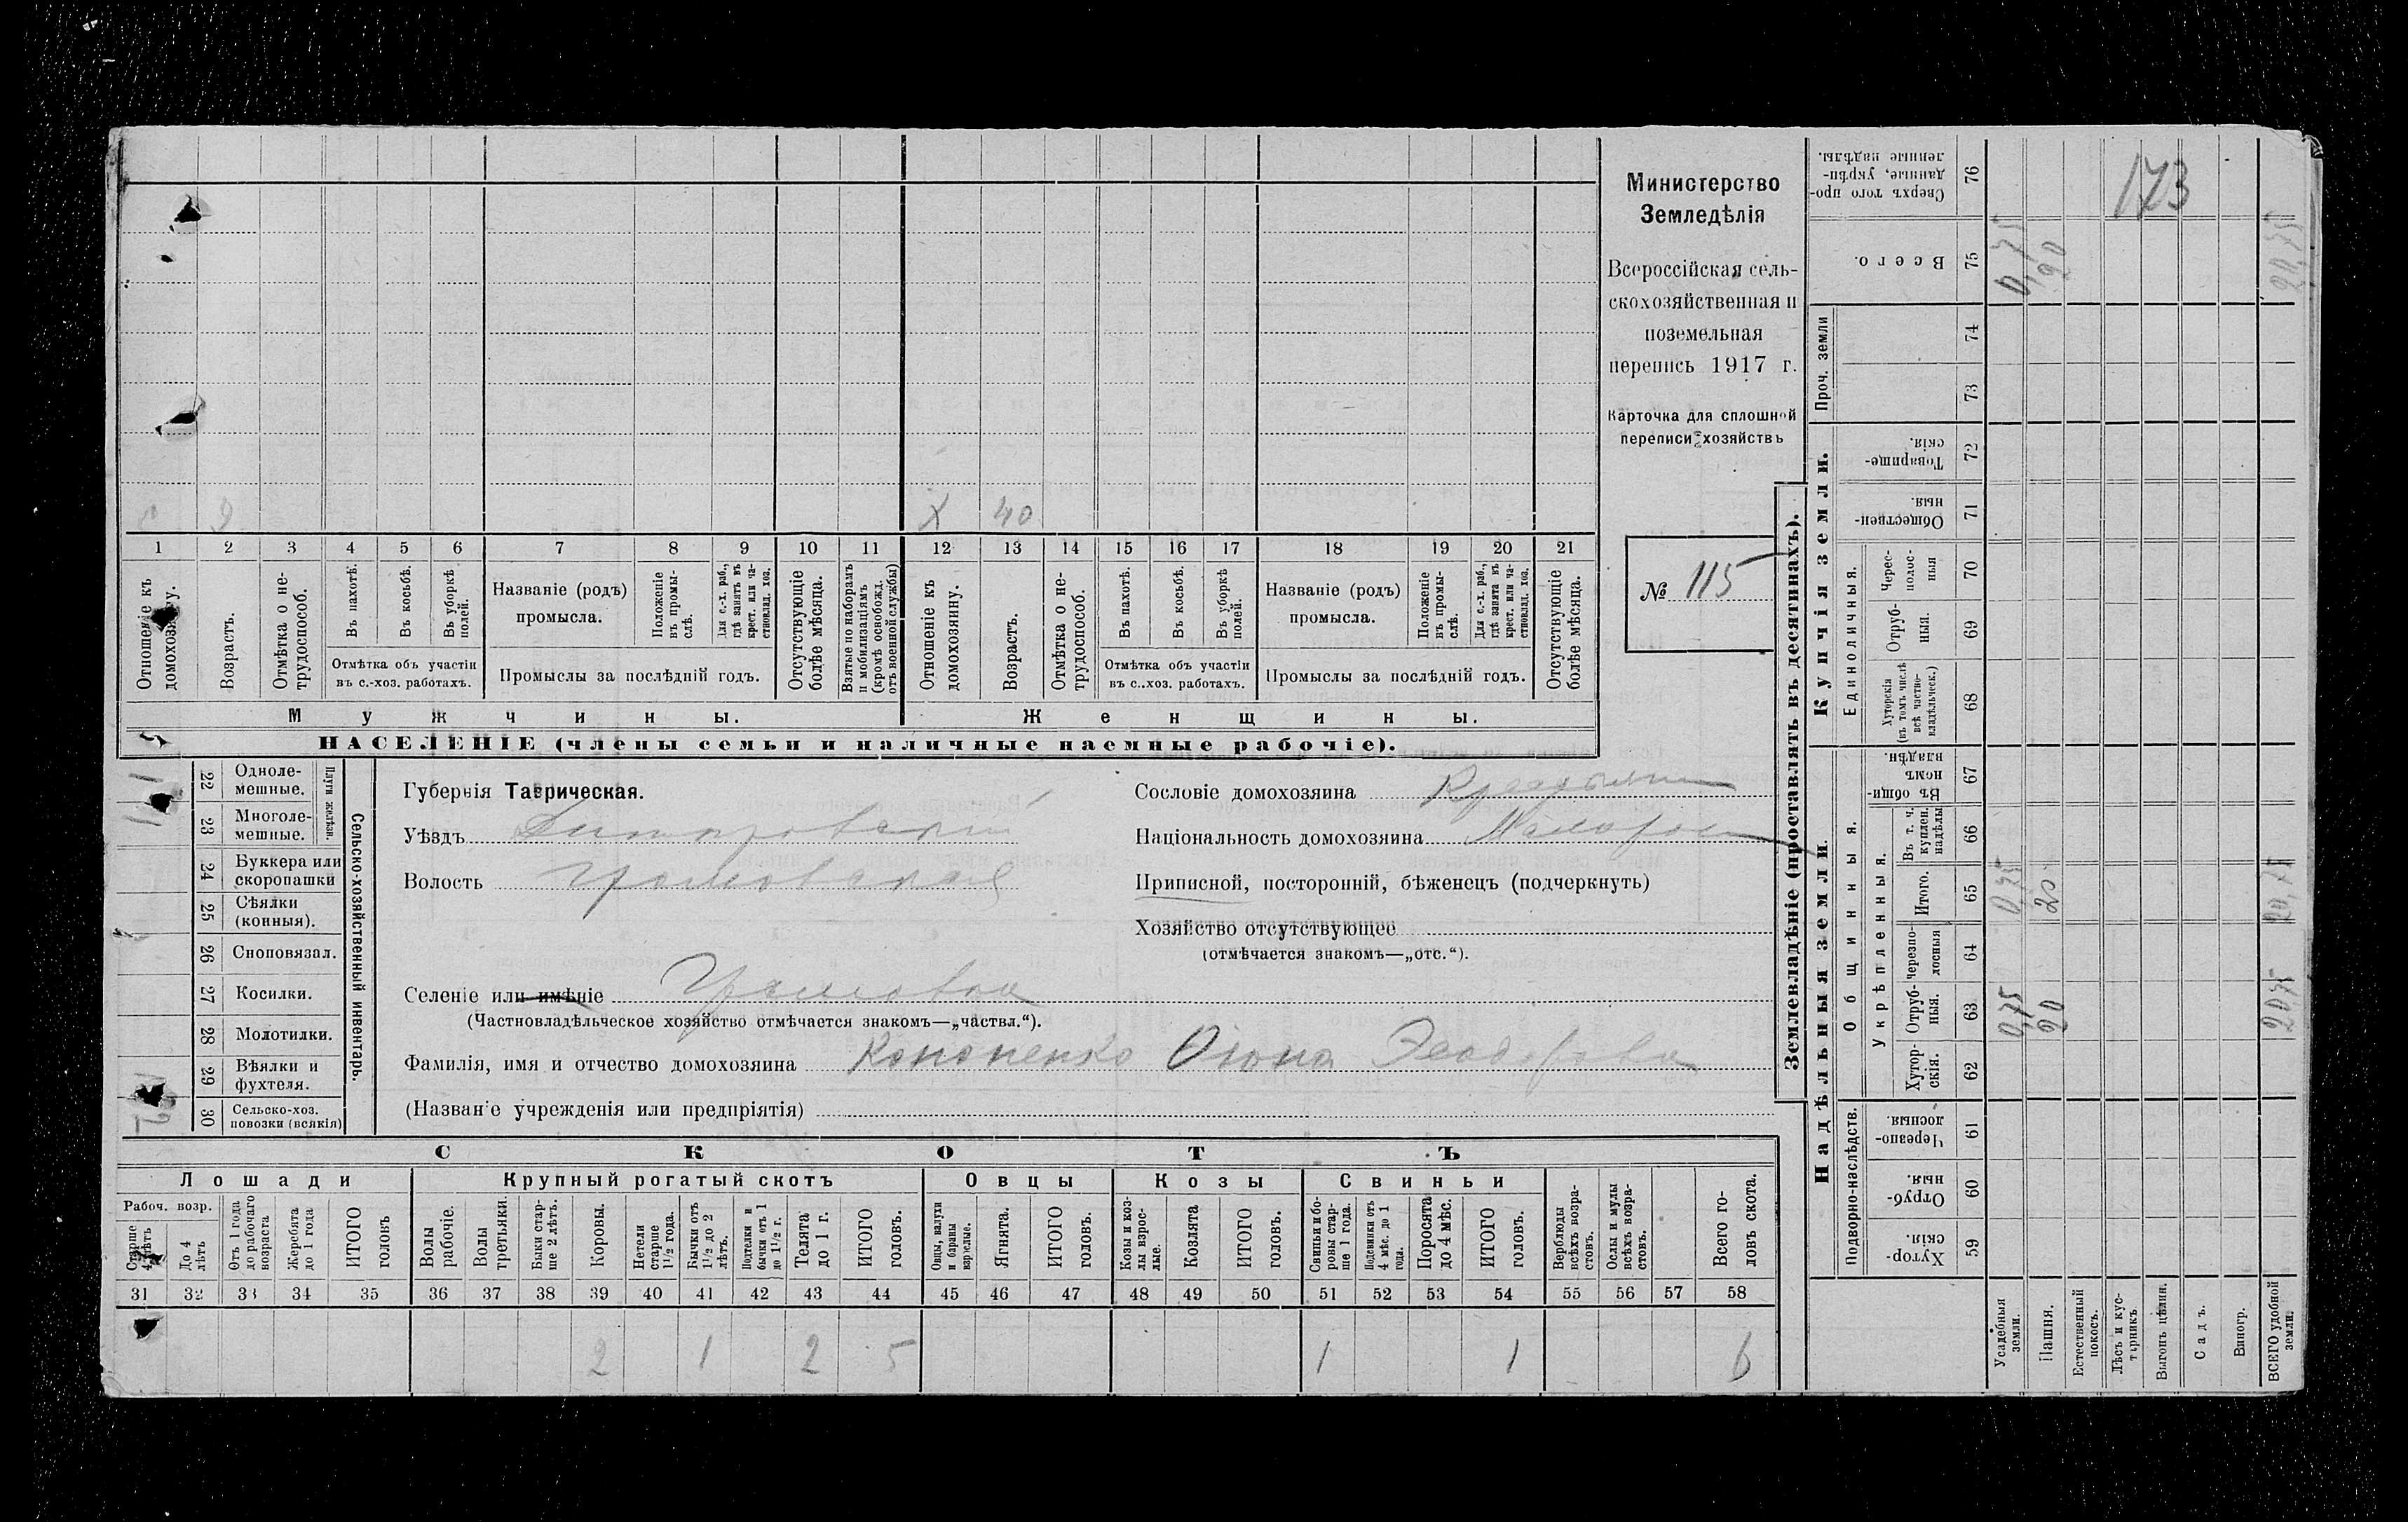 173
Министерство
Земледѣлія
Всероссійская сель-
скохозяйственная и
поземельная
перепись 1917 г.
Карточка для сплошной
переписи хозяйствъ
№ 115
Х 40
1 2 3 4 5 6 7 8 9 10 11 12 13 14 15 16 17 18 19 20 21
Отношеніе къ домохозяину.
Возрастъ.
Отмѣтка о не-трудоспособ.
Въ пахотѣ.
Въ косьбѣ.
Въ уборкѣ полей.
Отмѣтка объ участіи
въ с.-хоз. работахъ.
Названіе (родъ)
промысла.
Положеніе въ промы-слѣ.
Для с.-х. раб., гдѣ занятъ въ крест. или ча-стновлад. хоз.
Промыслы за послѣдній годъ.
Отсутствующіе болѣе мѣсяца.
Взятые по наборамъ и мобилизаціямъ (кромѣ освобожд. отъ военной службы)
Отношеніе къ домохозяину.
Возрастъ.
Отмѣтка о не-трудоспособ.
Въ пахотѣ.
Въ косьбѣ.
Въ уборкѣ полей.
Отмѣтка объ участіи
въ с.-хоз. работахъ.
Названіе (родъ)
промысла.
Положеніе въ промы-слѣ.
Для с.-х. раб., гдѣ занята въ крест. или ча-стновлад. хоз.
Промыслы за послѣдній годъ.
Отсутствующіе болѣе мѣсяца.
Мужчины.
Женщины.
НАСЕЛЕНІЕ (члены семьи и наличные наемные рабочіе).
Сельско-хозяйственный инвентарь.
Плуги желѣзн.
22 Одноле-мешные.
23 Многоле-мешные.
24 Буккера или скоропашки
25 Сѣялки (конныя).
26 Сноповязал.
27 Косилки.
28 Молотилки.
29 Вѣялки и фухтеля.
30 Сельско-хоз. повозки (всякія)
Губернія Таврическая.
Уѣздъ
Волость
Селеніе или имѣніе Громовка
(Частновладѣльческое хозяйство отмѣчается знакомъ—„частвл.“).
Фамилія, имя и отчество домохозяина Кононенко
(Названіе учрежденія или предпріятія)
Сословіе домохозяина
Національность домохозяина Малоросс
Приписной, посторонній, бѣженецъ (подчеркнуть)
Хозяйство отсутствующее
(отмѣчается знакомъ—„отс.“).
СКОТЪ
Лошади
Крупный рогатый скотъ
Овцы
Козы
Свиньи
Рабоч. возр.
Старше 4 лѣтъ
До 4 лѣтъ
Отъ 1 года до рабочаго возраста
Жеребята до 1 года
ИТОГО головъ
Волы рабочіе.
Волы третьяки.
Быки стар-ше 2 лѣтъ.
Коровы.
Нетели старше 1½ года.
Бычки отъ 1½ до 2 лѣтъ.
Подтелки и бычки отъ 1 до 1½ г.
Телята до 1 г.
ИТОГО головъ.
Овцы, валухи и бараны взрослые.
Ягнята.
ИТОГО головъ.
Козы и коз-лы взрос-лые.
Козлята
ИТОГО головъ.
Свиньи и бо-ровы стар-ше 1 года.
Подсвинки отъ 4 мѣс. до 1 года.
Поросята до 4 мѣс.
ИТОГО головъ.
Верблюды всѣхъ возра-стовъ.
Ослы и мулы всѣхъ возра-стовъ.
Всего го-ловъ скота.
31 32 33 34 35 36 37 38 39 40 41 42 43 44 45 46 47 48 49 50 51 52 53 54 55 56 57 58
2 1 2 5 1 1 6
Землевладѣніе (проставлять въ десятинахъ).
Надѣльныя земли.
Купчія земли.
Проч. земли
Подворно-наслѣдств.
Общинныя.
Укрѣпленныя.
Единоличныя.
59 Хутор-скія.
60 Отруб-ныя.
61 Черезпо-лосныя.
62 Хутор-скія.
63 Отруб-ныя.
64 Черезпо-лосныя
65 Итого.
66 Въ т. ч. куплен. надѣлы
67 Въ общи-номъ владѣн.
68 Хуторскія (въ томъ числѣ всѣ частно-владѣльческ.)
69 Отруб-ныя.
70 Черес-полос-ныя
71 Обществен-ныя.
72 Товарище-скія.
73
74
75 Всего.
76 Сверхъ того про-данные, укрѣп-ленные надѣлы.
Усадебныя земли.
Пашня.
Естественный покосъ.
Лѣсъ и кус-тарникъ.
Выгонъ цѣлин.
Садъ.
Виногр.
ВСЕГО удобной земли.
0,75 20 20,75
0,75 20 20,75
0,75 20 20,75